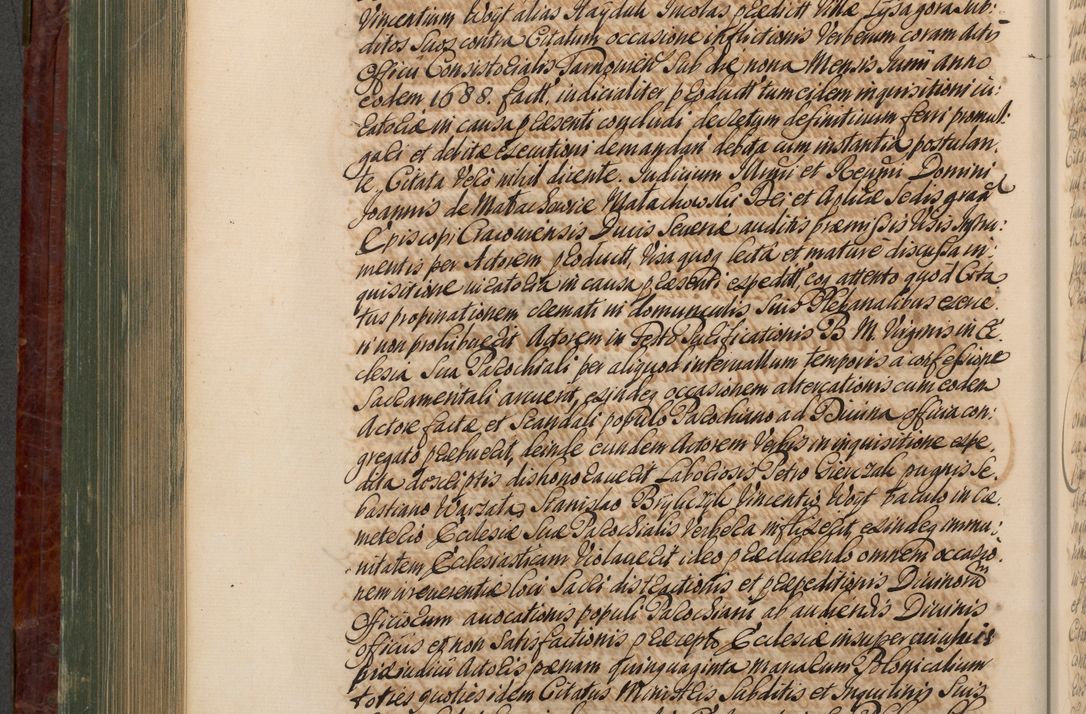 Vincentium Woyt alias Hayduk Incolas praedictae Villae Lysagora Sub:
ditos Suos contra Citatum occasione inflictionis Verberum coram actis
Officii Consistorialis Tarnovien Sub die nona Mensis Junii anno
eodem 1688. factt, iudicialiter productt tum eidem inquisitioni iu:
ratoriae in causa praesenti concludi decretum definitivum ferri promul:
gari et debitae executioni demandari debita cum instantia postulan:
te, Citata Vero nihil dicente. Iudicium Illmi et Reverendissimi Domini
Joannis de Małachowice Małachowski Dei et Aplicae Sedis gratia
Episcopi Cracoviensis Ducis Severiae auditis praemissis Visis Instru:
mentis per Actorem productt, Visa quoq lecta et mature discussa in:
quisitione iuratoria in causa praesenti expeditt, eoq attento quod Cita
tus propinationem cremati in domunculis Suis Plebanalibus exerce
ri non prohibuerit Actorem in Festo Purificationis B. M. Virginis in Ec:
clesia Sua Parochiali per aliquod intervallum temporis a confessione
Sacramentali arcuerit, exindeq occasionem altercationis cum eodem
Actore factae et Scandali populo Parochiano ad Divina officia con:
gregato praebuerit, deinde eundem Actorem Verbis in inquisitione expe:
dita descriptis dishonoraverit Laboriosis Petro Cierczak pugnis Se:
bastiano Warzala, Stanislao Brylczyk Vincentio Woyt baculo in Cae:
meterio Ecclesiae Suae Parochialis Verbera inflixerit, exindeq immu:
nitatem Ecclesiasticam Violaverit ideo praecludendo omnem occasio:
nem irreverentiae loci Sacri distractionis et praepeditionis Divinorum
Officiorum avocationis populi Parochiani ab audiendis Divinis
officiis et non Satisfactionis praecepto Ecclesiae insuper cuiusvis
praeiudicii Actoris paenam quinquaginta marcarum Polonicalium
toties quoties idem Citatus Ministris Subditis et Inquilinis Suis